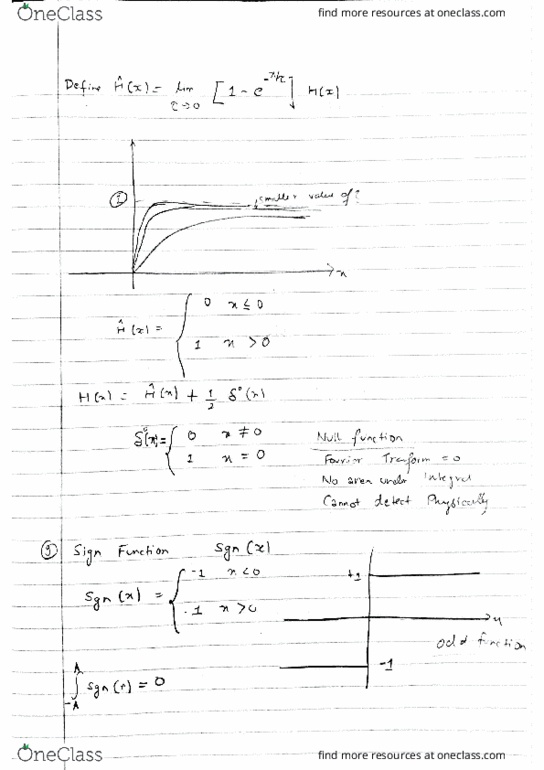 OneClass
find more resources at oneclass.com
Define Ĥ(x) = lim τ→0 [1 - e^-x/τ] H(x)
1
smaller value of τ
x
Ĥ(x) = { 0 x ≤ 0
1 x > 0
H(x) = Ĥ(x) + 1/2 δ°(x)
δ°(x) = { 0 x ≠ 0
1 x = 0
Null function
Fourier Trasform = 0
No area under integral
Cannot detect Physically
9 Sign Function Sgn(x)
Sgn(x) = { -1 x < 0
1 x > 0
+1
x
odd function
-1
∫ -A A sgn(x) = 0
OneClass
find more resources at oneclass.com